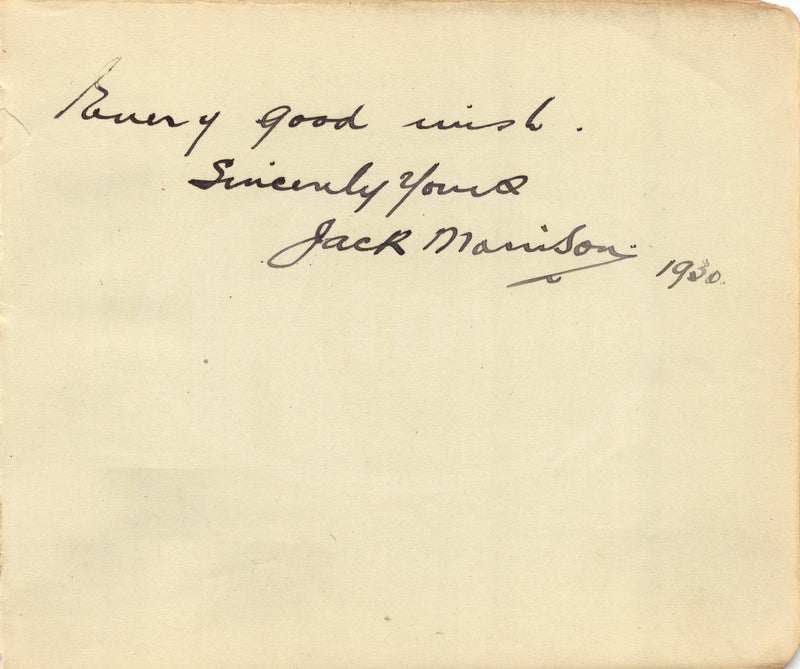 Every good wish.
Sincerely Yours
Jack Morrison.
1930.